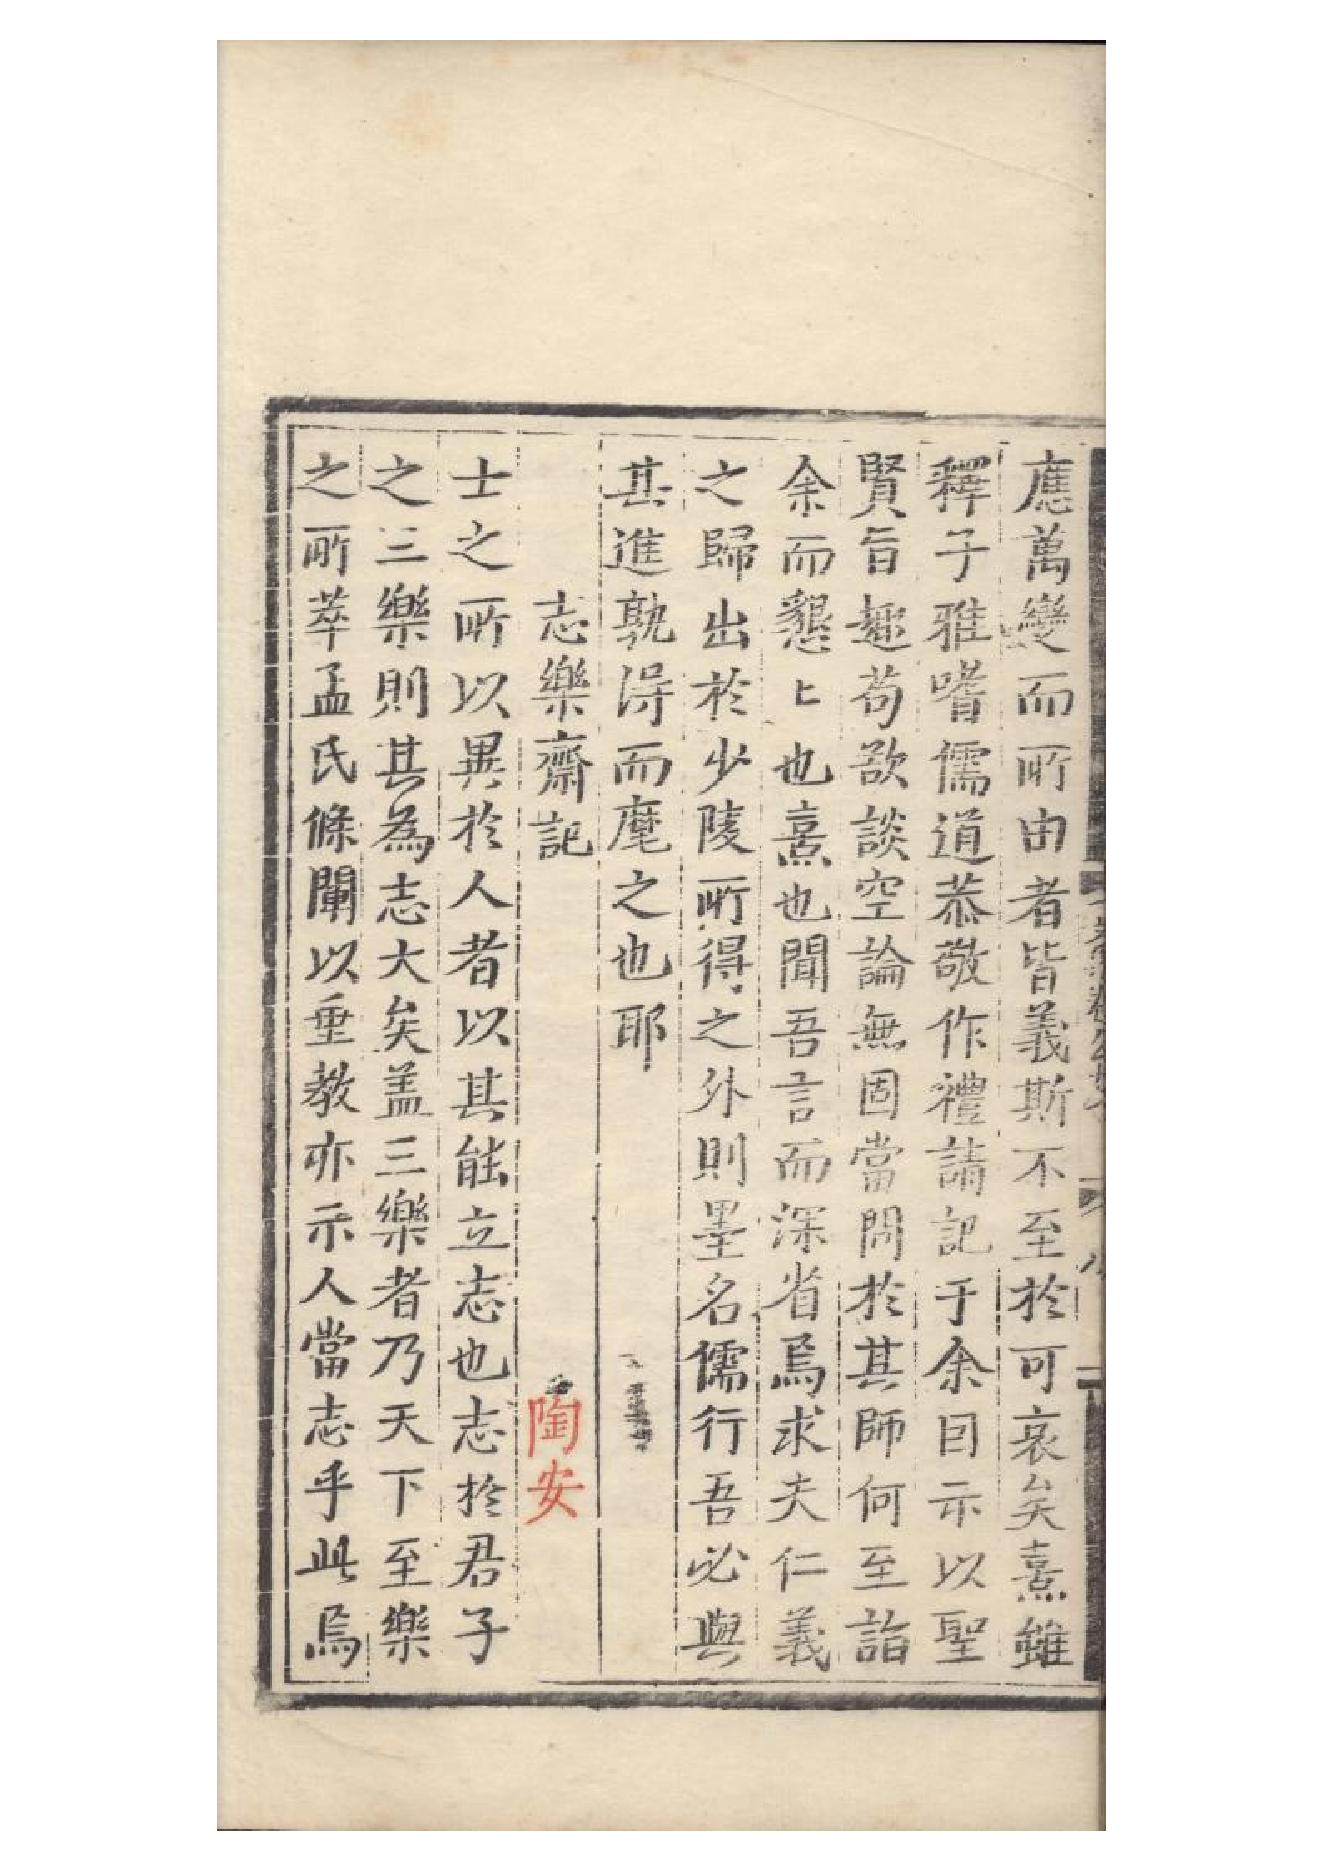 應萬變而所由者皆義斯不至於可哀矣熹雖
釋子雅嗜儒道恭敬作禮請記于余因示以聖
賢旨趣苟欲談空論無固當問於其師何至詣
余而懇〻也熹也聞吾言而深省焉求夫仁義
之歸出於少陵所得之外則墨名儒行吾必與
其進孰得而麾之也耶
志樂齋記
陶安
士之所以異於人者以其能立志也志於君子
之三樂則其為志大矣盖三樂者乃天下至樂
之所萃孟氏條闡以垂教亦示人當志乎此焉